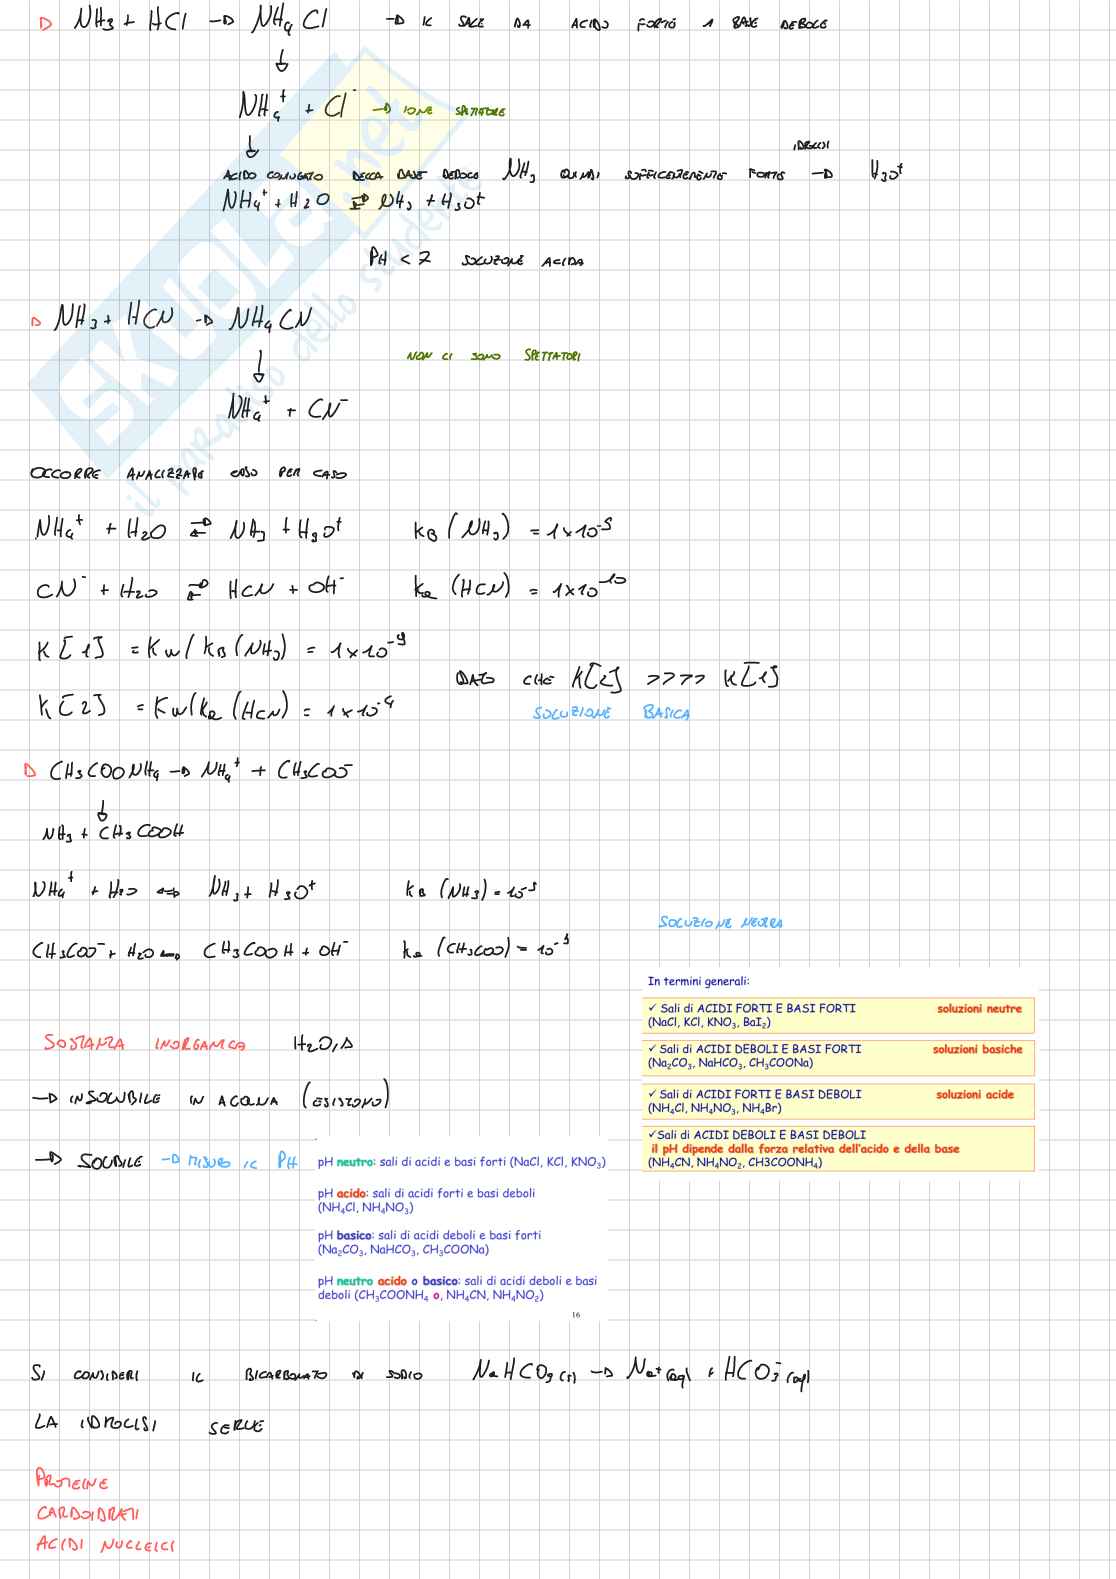 NH3 + HCl → NH4Cl → IL SALE DA ACIDO FORTE 1 BASE DEBOLE
↓
NH4+ + Cl- → IONE SPETTATORE
↓
IDROLISI
ACIDO CONIUGATO DELLA BASE DEBOLE NH3 QUINDI SUFFICIENTEMENTE FORTE → H3O+
NH4+ + H2O ⇄ NH3 + H3O+
PH < 7 SOLUZIONE ACIDA
NH3 + HCN → NH4CN
↓
NON CI SONO SPETTATORI
NH4+ + CN-
OCCORRE ANALIZZARE CASO PER CASO
NH4+ + H2O ⇄ NH3 + H3O+ KB (NH3) = 1x10-5
CN- + H2O ⇄ HCN + OH- Ka (HCN) = 1x10-10
K[1] = Kw/KB(NH3) = 1x10-9
DATO CHE K[2] >>>> K[1]
K[2] = Kw/Ka (HCN) = 1x10-4
SOLUZIONE BASICA
CH3COONH4 → NH4+ + CH3COO-
↓
NH3 + CH3COOH
NH4+ + H2O ⇔ NH3 + H3O+ KB (NH3) = 10-5
SOLUZIONE NEUTRA
CH3COO- + H2O ⇔ CH3COOH + OH- Ka (CH3COO) = 10-5
In termini generali:
✓ Sali di ACIDI FORTI E BASI FORTI soluzioni neutre
(NaCl, KCl, KNO3, BaI2)
✓ Sali di ACIDI DEBOLI E BASI FORTI soluzioni basiche
(Na2CO3, NaHCO3, CH3COONa)
✓ Sali di ACIDI FORTI E BASI DEBOLI soluzioni acide
(NH4Cl, NH4NO3, NH4Br)
✓Sali di ACIDI DEBOLI E BASI DEBOLI
il pH dipende dalla forza relativa dell'acido e della base
(NH4CN, NH4NO2, CH3COONH4)
SOSTANZA INORGANICA H2O, Δ
→ INSOLUBILE IN ACQUA (ESISTONO)
→ SOLUBILE → MISURO IL PH
pH neutro: sali di acidi e basi forti (NaCl, KCl, KNO3)
pH acido: sali di acidi forti e basi deboli
(NH4Cl, NH4NO3)
pH basico: sali di acidi deboli e basi forti
(Na2CO3, NaHCO3, CH3COONa)
pH neutro acido o basico: sali di acidi deboli e basi
deboli (CH3COONH4 o, NH4CN, NH4NO2)
16
SI CONSIDERI IL BICARBONATO DI SODIO NaHCO3 (s) → Na+ (aq) + HCO3- (aq)
LA IDROLISI SERVE
PROTEINE
CARBOIDRATI
ACIDI NUCLEICI
SKUOLA.net
il paradiso dello studente